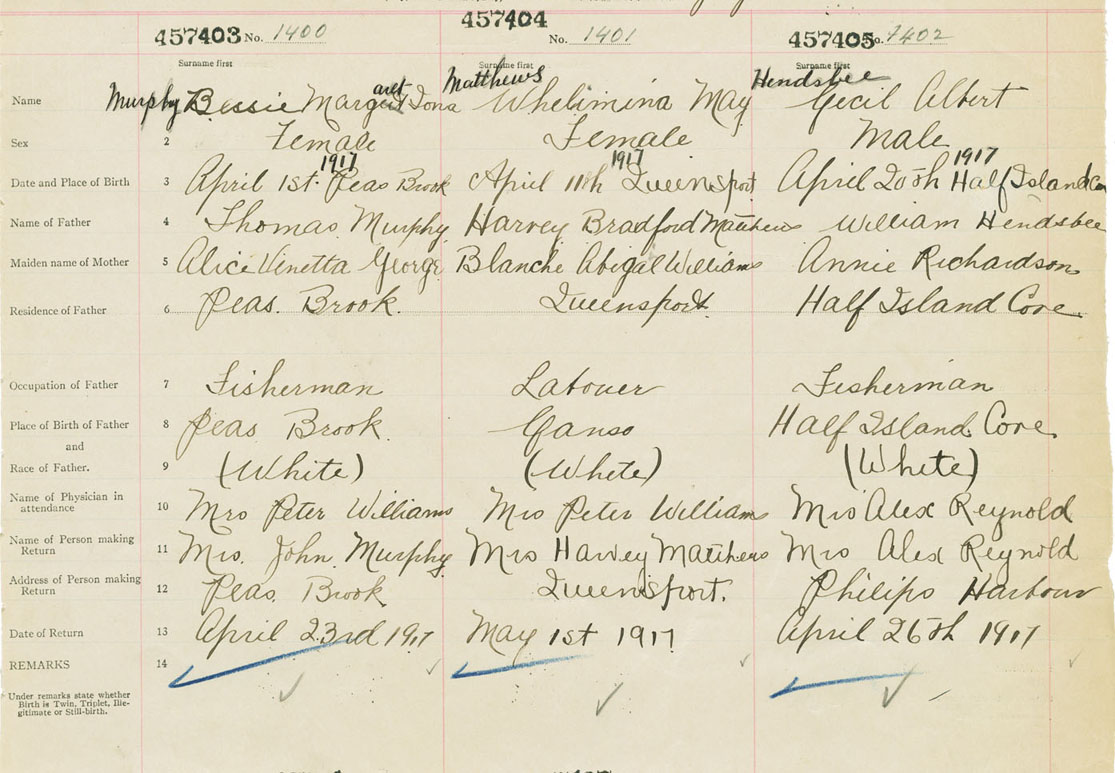 457403 No. 1400 457404 No. 1401 457405 No. 1402
Surname first Surname first Surname first
Matthews Hendsbee
aret
Name Murphy Bessie Margret Iona Whelimina May Cecil Albert
Sex 2 Female Female Male
1917 1917 1917
Date and Place of Birth 3 April 1st. Peas Brook April 11th Queensport April 20th Half Island Cove
Name of Father 4 Thomas Murphy Harvey Bradford Matthews William Hendsbee
Maiden name of Mother 5 Alice Vinetta George Blanche Abigal Williams Annie Richardson
Residence of Father 6 Peas. Brook. Queensport. Half Island Cove.
Occupation of Father 7 Fisherman Labouer Fisherman
Place of Birth of Father 8 Peas Brook. Canso Half Island Cove.
and
Race of Father. 9 (White) (White) (White)
Name of Physician in
attendance 10 Mrs Peter Williams Mrs Peter Williams Mrs Alex Reynold
Name of Person making
Return 11 Mrs. John Murphy Mrs Harvey Matthews Mrs Alex Reynold
Address of Person making
Return 12 Peas Brook Queensport. Philips Harbour
Date of Return 13 April 23rd 1917 May 1st 1917 April 26th 1917
REMARKS 14
Under remarks state whether
Birth is Twin, Triplet, Ille-
gitimate or Still-birth.